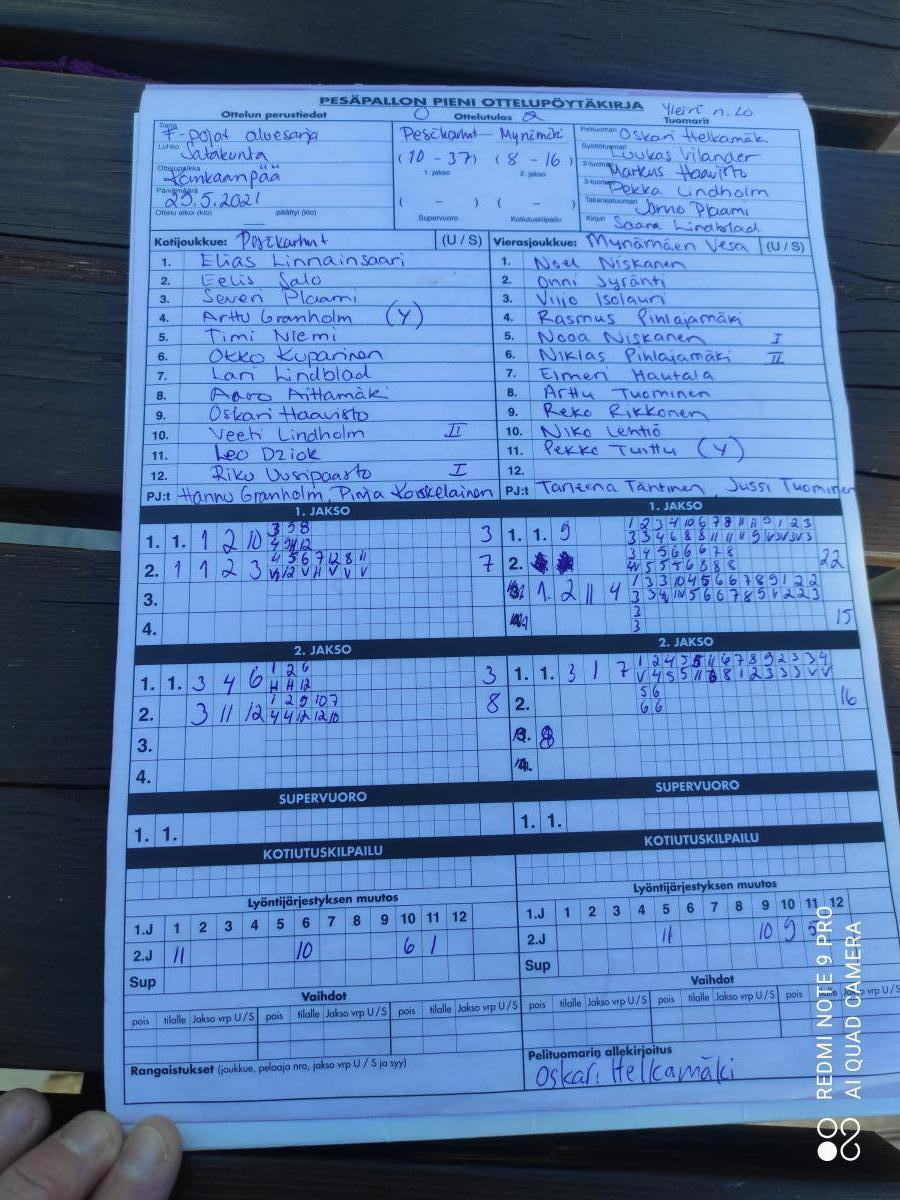 PESÄPALLON PIENI OTTELUPÖYTÄKIRJA
Yleisö n. 20
Ottelun perustiedot
0 Ottelutulos 2
Tuomarit
Sarja F-pojat aluesarja
Lohko Satakunta
Ottelupaikka Kankaanpää
Päivämäärä 25.5.2021
Ottelu alkoi (klo) päättyi (klo)
Pesäkarhut – Mynämäki
(10 - 37) (8 - 16)
1. jakso 2. jakso
( - ) ( - )
Supervuoro Kotiutuskilpailu
Pelituomari Oskari Helkamäki
Syöttötuomari Loukas Vilander
2-tuomari Markus Haavisto
3-tuomari Pekka Lindholm
Takarajatuomari Jarno Plaami
Kirjuri Saara Lindblad
Kotijoukkue: Pesäkarhut (U / S)
1. Elias Linnainsaari
2. Eelis Salo
3. Seven Plaami
4. Arttu Granholm (Y)
5. Timi Niemi
6. Okko Kuparinen
7. Lari Lindblad
8. Aaro Aittamäki
9. Oskari Haavisto
10. Veeti Lindholm II
11. Leo Dziok
12. Riku Uusipaasto I
PJ:t Hannu Granholm, Pinja Koiskelainen
Vierasjoukkue: Mynämäen Vesa (U / S)
1. Noel Niskanen
2. Onni Syränti
3. Viljo Isolauri
4. Rasmus Pihlajamäki
5. Nooa Niskanen I
6. Niklas Pihlajamäki II
7. Eimeri Hautala
8. Arttu Tuominen
9. Reko Rikkonen
10. Niko Lehtiö
11. Pekko Turttu (Y)
12.
PJ:t Tanteena Tantinen, Jussi Tuominen
1. JAKSO
1. 1. 1 2 10 3 5 8 3
2. 1 1 2 3 4 5 6 7 12 8 11 7
3.
4.
1. JAKSO
1. 1. 9 1 2 3 4 10 6 7 8 11 11 9 1 2 3
2. 3 4 5 6 6 6 7 8 22
3. 1. 2 11 4 1 3 3 10 4 5 6 6 7 8 9 1 2 2
3
3 15
2. JAKSO
1. 1. 3 4 6 1 2 6 3
2. 3 11 12 1 2 9 10 7 8
4 4 12 12 10
3.
4.
2. JAKSO
1. 1. 3 1 7
2. 5 6 16
6 6
SUPERVUORO
1. 1.
SUPERVUORO
1. 1.
KOTIUTUSKILPAILU
KOTIUTUSKILPAILU
Lyöntijärjestyksen muutos
1.J 1 2 3 4 5 6 7 8 9 10 11 12
2.J 11 10 6 1
Sup
Lyöntijärjestyksen muutos
1.J 1 2 3 4 5 6 7 8 9 10 11 12
2.J 11 10 9 5
Sup
Vaihdot
pois tilalle Jakso vrp U / S pois tilalle Jakso vrp U / S pois tilalle Jakso vrp U / S
Vaihdot
pois tilalle Jakso vrp U / S pois tilalle Jakso vrp U / S pois tilalle Jakso vrp U / S
Rangaistukset (joukkue, pelaaja nro, jakso vrp U / S ja syy)
Pelituomarin allekirjoitus
Oskari Helkamäki
REDMI NOTE 9 PRO
AI QUAD CAMERA